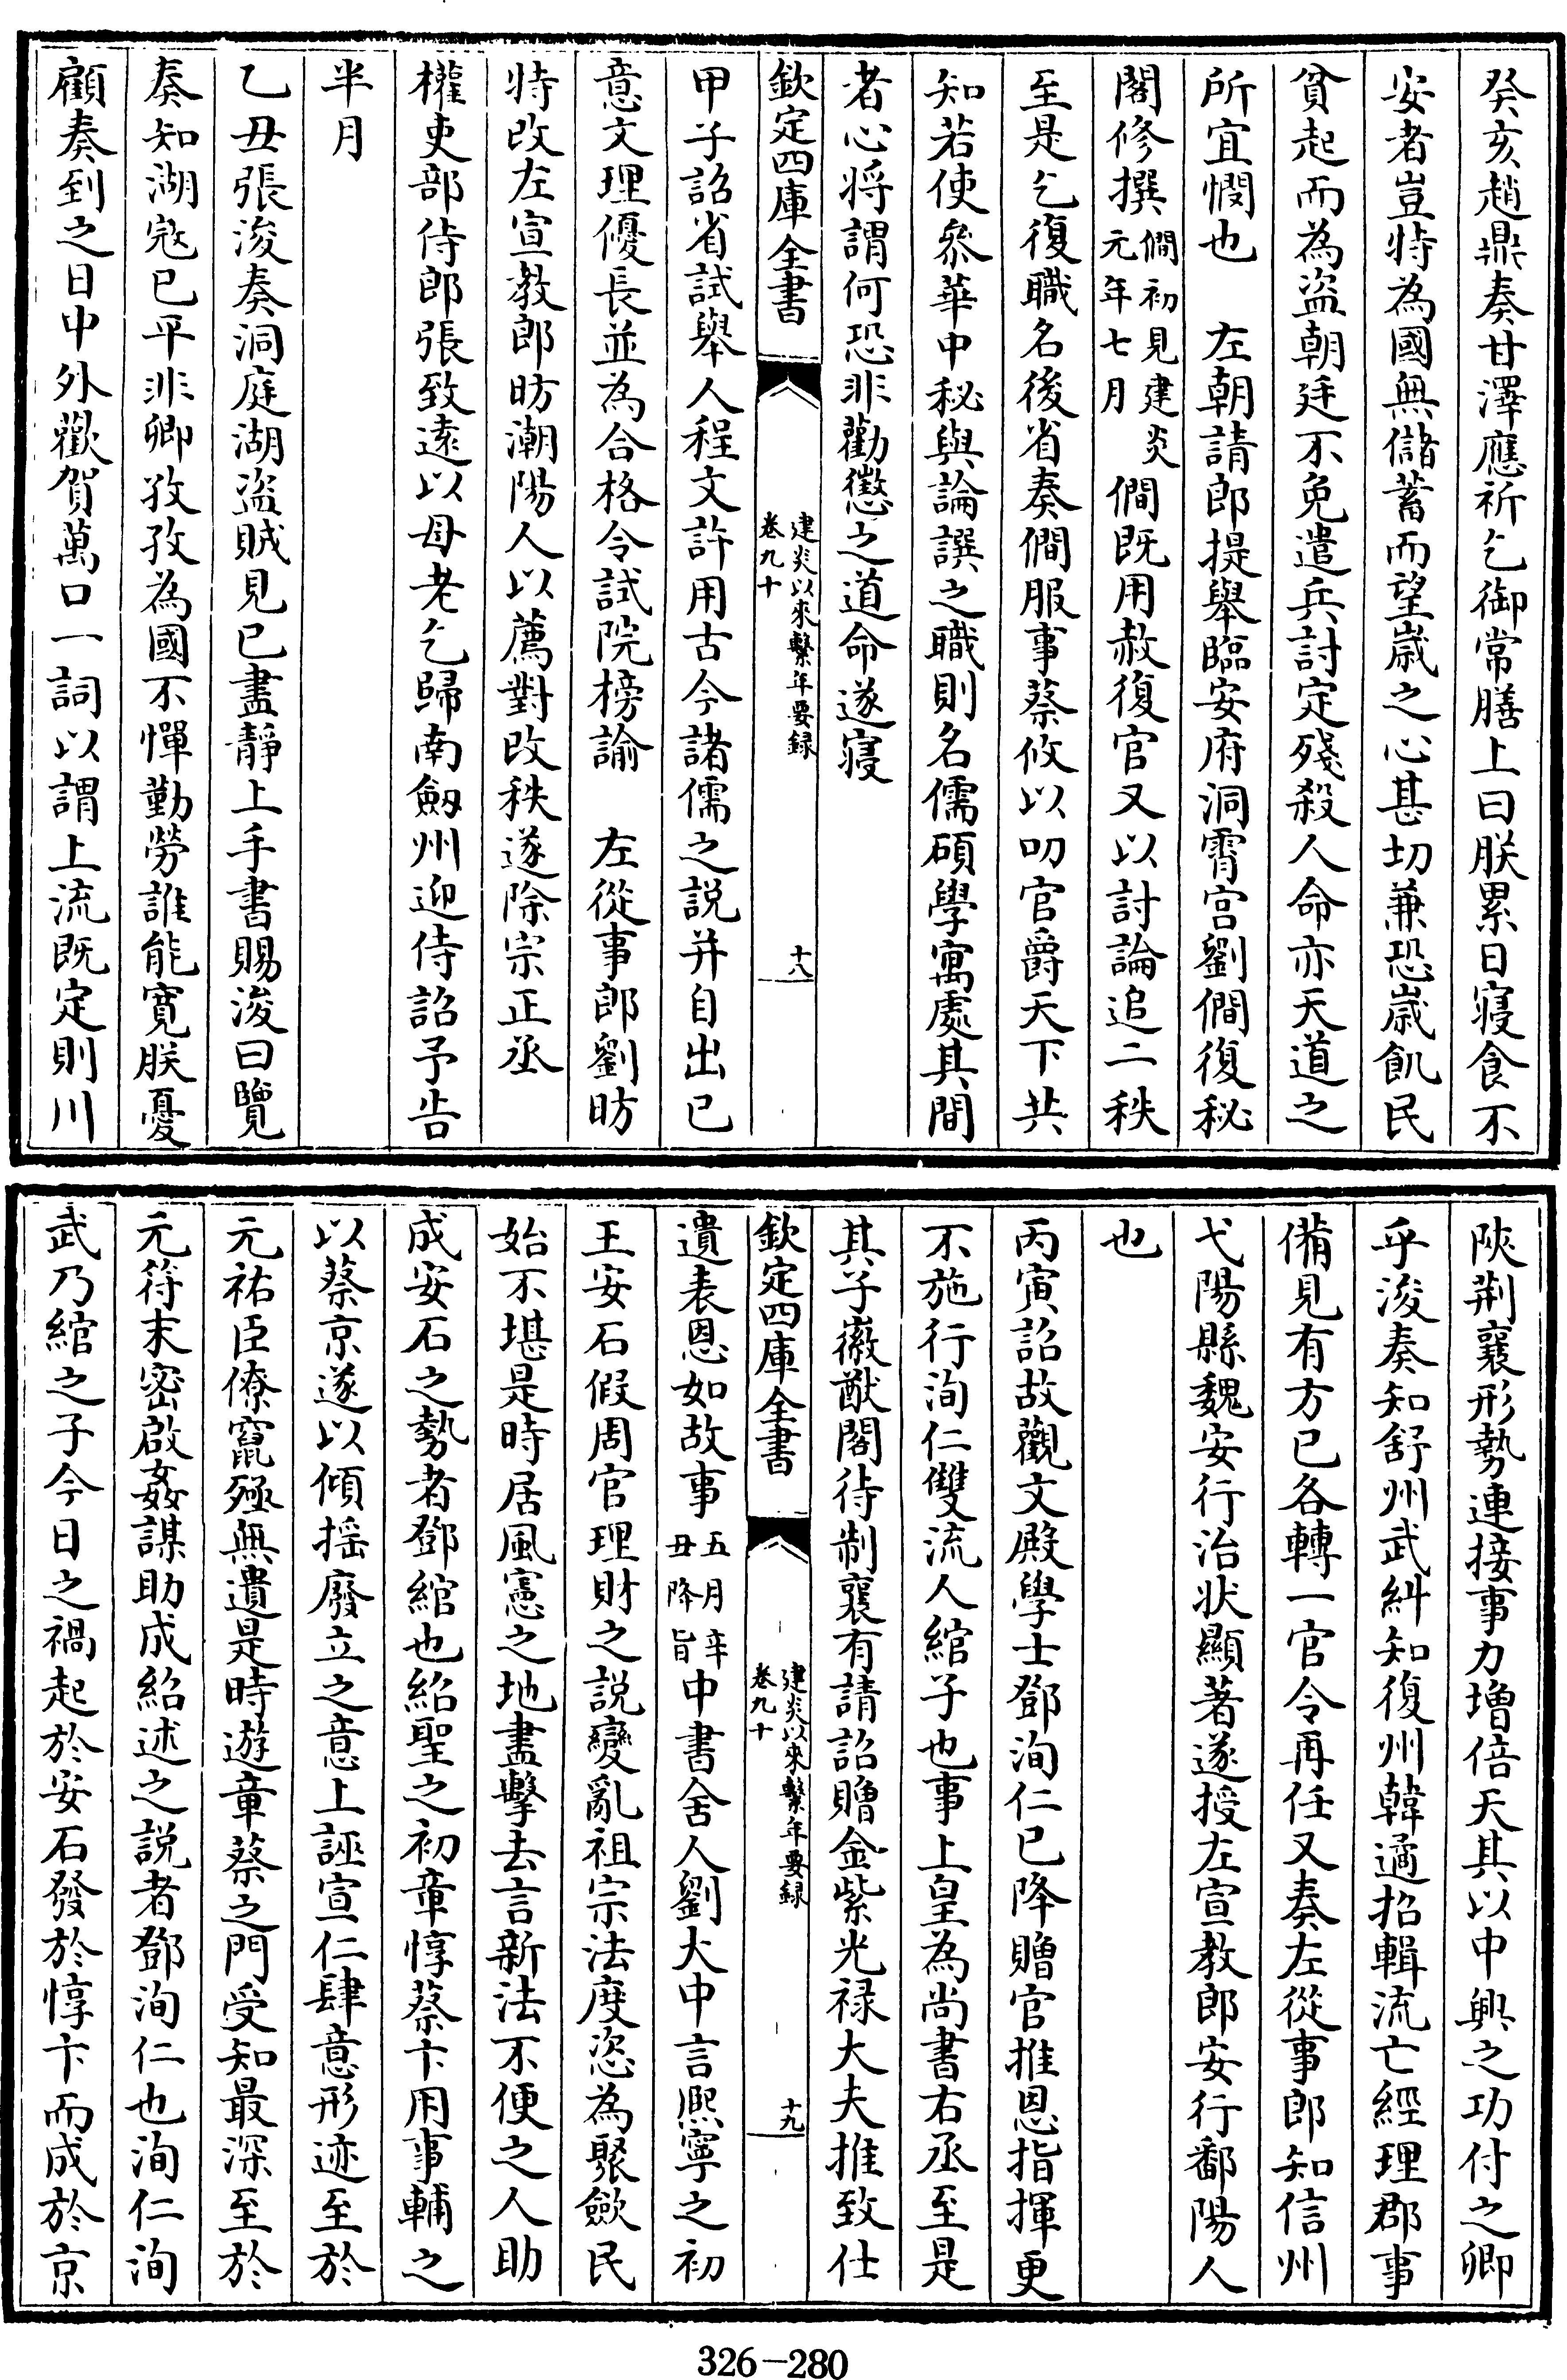 癸亥趙鼎奏甘澤應祈乞御常膳上曰朕累日寢食不
安者豈特為國無儲蓄而望歲之心甚切兼恐歲飢民
貧起而為盜朝廷不免遣兵討定殘殺人命亦天道之
所宜憫也　左朝請郎提舉臨安府洞霄宮劉僩復秘
閣修撰僩初見建炎元年七月僩既用赦復官又以討論追二秩
至是乞復職名後省奏僩服事蔡攸以叨官爵天下共
知若使叅華中秘與論譔之職則名儒碩學寓處其間
者心將謂何恐非勸懲之道命遂寢
欽定四庫全書　建炎以來繫年要録　卷九十　十八
甲子詔省試舉人程文許用古今諸儒之説并自出己
意文理優長並為合格令試院榜諭　左從事郎劉昉
特改左宣教郎昉潮陽人以薦對改秩遂除宗正丞
權吏部侍郎張致遠以母老乞歸南劔州迎侍詔予告
半月
乙丑張浚奏洞庭湖盜賊見已盡靜上手書賜浚曰覽
奏知湖寇已平非卿孜孜為國不憚勤勞誰能寛朕憂
顧奏到之日中外歡賀萬口一詞以謂上流既定則川
陜荆襄形勢連接事力增倍天其以中興之功付之卿
乎浚奏知舒州武糾知復州韓遹招輯流亡經理郡事
備見有方已各轉一官令再任又奏左從事郎知信州
弋陽縣魏安行治状顯著遂授左宣教郎安行鄱陽人
也
丙寅詔故觀文殿學士鄧洵仁已降贈官推恩指揮更
不施行洵仁雙流人綰子也事上皇為尚書右丞至是
其子徽猷閣待制襄有請詔贈金紫光禄大夫推致仕
欽定四庫全書　建炎以來繫年要録　卷九十　十九
遺表恩如故事五月辛丑降旨中書舍人劉大中言熈寧之初
王安石假周官理財之説變亂祖宗法度恣為聚歛民
始不堪是時居風憲之地盡擊去言新法不便之人助
成安石之勢者鄧綰也紹聖之初章惇蔡卞用事輔之
以蔡京遂以傾揺廢立之意上誣宣仁肆意形迹至於
元祐臣僚竄殛無遺是時遊章蔡之門受知最深至於
元符末密啟姦謀助成紹述之説者鄧洵仁也洵仁洵
武乃綰之子今日之禍起於安石發於惇卞而成於京
326-280